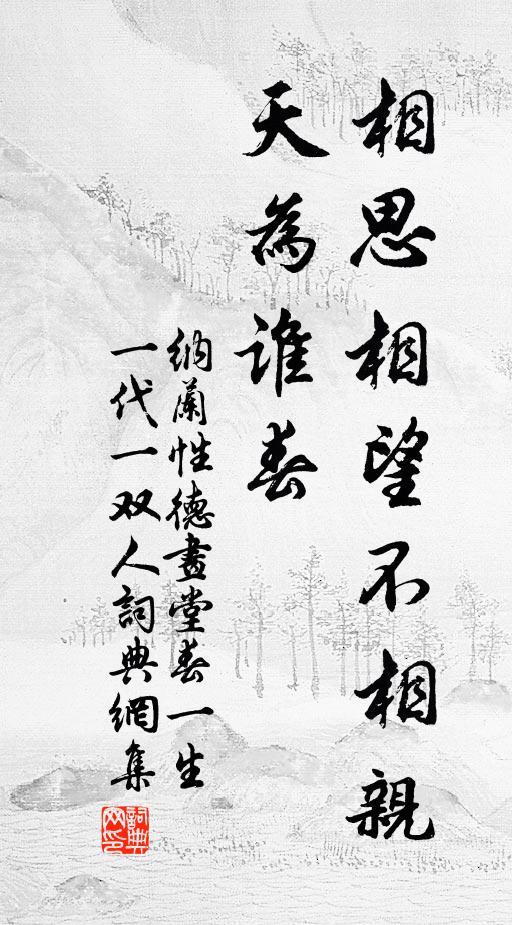 相思相望不相親
天為誰春
納蘭性德畫堂春一生
一代一双人詞典網集
詞典
网印